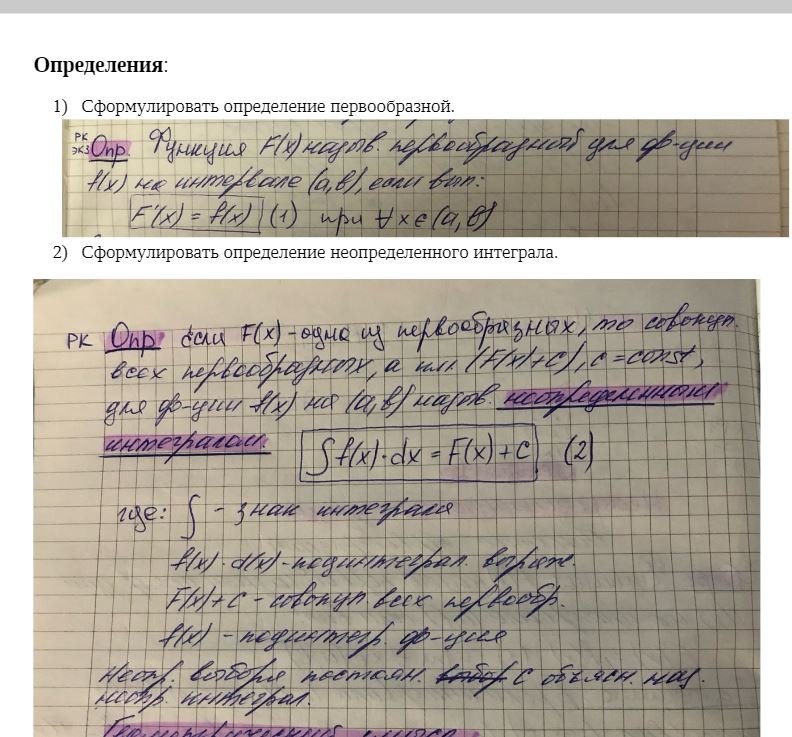 Определения:
1) Сформулировать определение первообразной.
РК
ЭКЗ Опр. Функция F(x) назыв. первообразной для ф-ции
f(x) на интервале (a,b), если вып:
F'(x) = f(x) (1) при ∀x∈(a,b)
2) Сформулировать определение неопределенного интеграла.
РК Опр Если F(x) - одна из первообразных, то совокуп.
всех первообразных, а или (F(x)+c), c = const,
для ф-ции f(x) на (a,b) назыв. неопределенным
интегралом.
∫f(x)·dx = F(x)+C (2)
где: ∫ - знак интеграла
f(x)·d(x) - подинтеграл. выраж.
F(x)+c - совокуп всех первообр.
f(x) - подинтегр. ф-ция
Неопр. выбора постоян. C объясн. наз.
неопр. интеграл.
Геометрический смысл